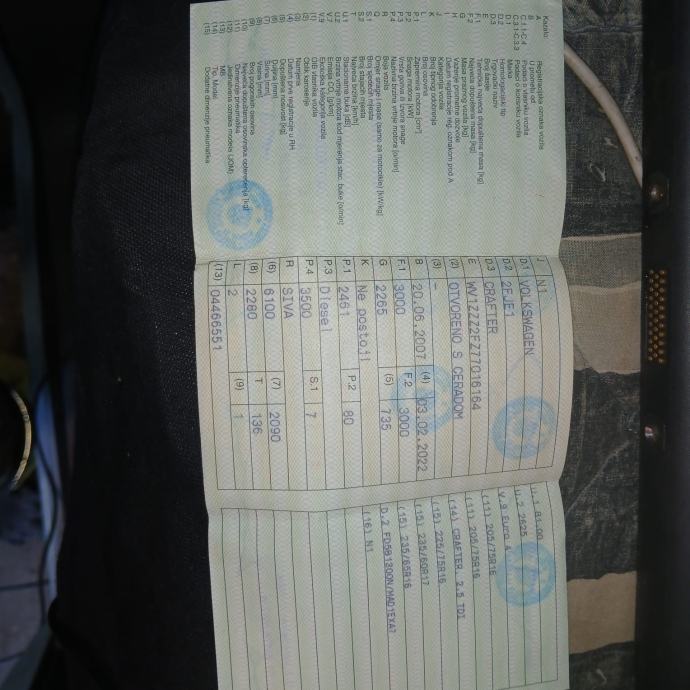 Kazalo:
A Registracijska oznaka vozila
B U prometu od
C.1.1-C.4 Podaci o vlasniku vozila
C.3.1-C.3.3 Podaci o korisniku vozila
D.1 Marka
D.2 Homologacijski tip
D.3 Trgovački naziv
E Broj šasije
F.1 Tehnička najveća dopuštena masa [kg]
F.2 Najveća dopuštena masa [kg]
G Masa praznog vozila [kg]
H Važenje prometne dozvole
I Datum registracije reg. oznakom pod A
J Kategorija vozila
K Broj tipnog odobrenja
L Broj osovina
P.1 Zapremina motora [cm³]
P.2 Snaga motora [kW]
P.3 Vrsta goriva ili izvora snage
P.4 Nazivna brzina vrtnje motora [o/min]
R Boja vozila
Q Omjer snage i mase (samo za motocikle) [kW/kg]
S.1 Broj sjedećih mjesta
S.2 Broj stajaćih mjesta
T Najveća brzina [km/h]
U.1 Stacionarna buka [dB]
U.2 Brzina vrtnje motora kod mjerenja stac. buke [o/min]
V.7 Emisija CO₂ [g/km]
V.9 Ekološka kategorija vozila
(1) OIB vlasnika vozila
(2) Oblik karoserije
(3) Namjena
(4) Datum prve registracije u RH
(5) Dopuštena nosivost [kg]
(6) Duljina [mm]
(7) Širina [mm]
(8) Visina [mm]
(9) Broj pogonskih osovina
(10) Najveće dopušteno osovinsko opterećenje [kg]
(11) Dimenzije pneumatika
(12) Jedinstvena oznaka modela (JOM)
(13) MB
(14) Tip, Model
(15) Dodatne dimenzije pneumatika
J N1
D.1 VOLKSWAGEN
D.2 2EJE1
D.3 CRAFTER
E WV1ZZZ2FZ77016164
(2) OTVORENO S CERADOM
(3) -
B 20.06.2007 (4) 03.02.2022
F.1 3000 F.2 3000
G 2265 (5) 735
K Ne postoji
P.1 2461 P.2 80
P.3 Diesel
P.4 3500 S.1 7
R SIVA
(6) 6100 (7) 2090
(8) 2280 T 136
L 2 (9) 1
(13) 04466551
U.1 81.00
U.2 2625
V.9 Euro 4
(11) 205/75R16
(11) 205/75R16
(14) CRAFTER, 2.5 TDI
(15) 225/75R16
(15) 235/60R17
(15) 235/65R16
D.2
(16) N1